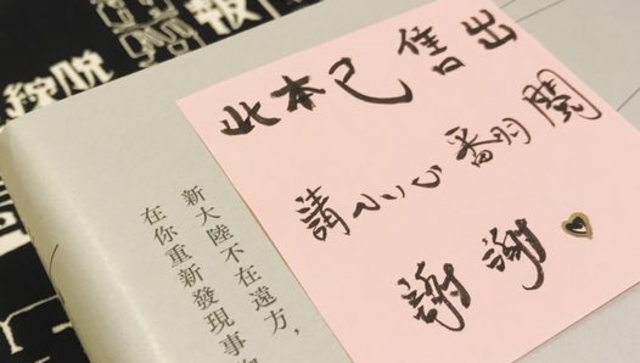 此本已售出
請小心翻閱
謝謝
新大陸不在遠方，
在你重新發現事
報
脫